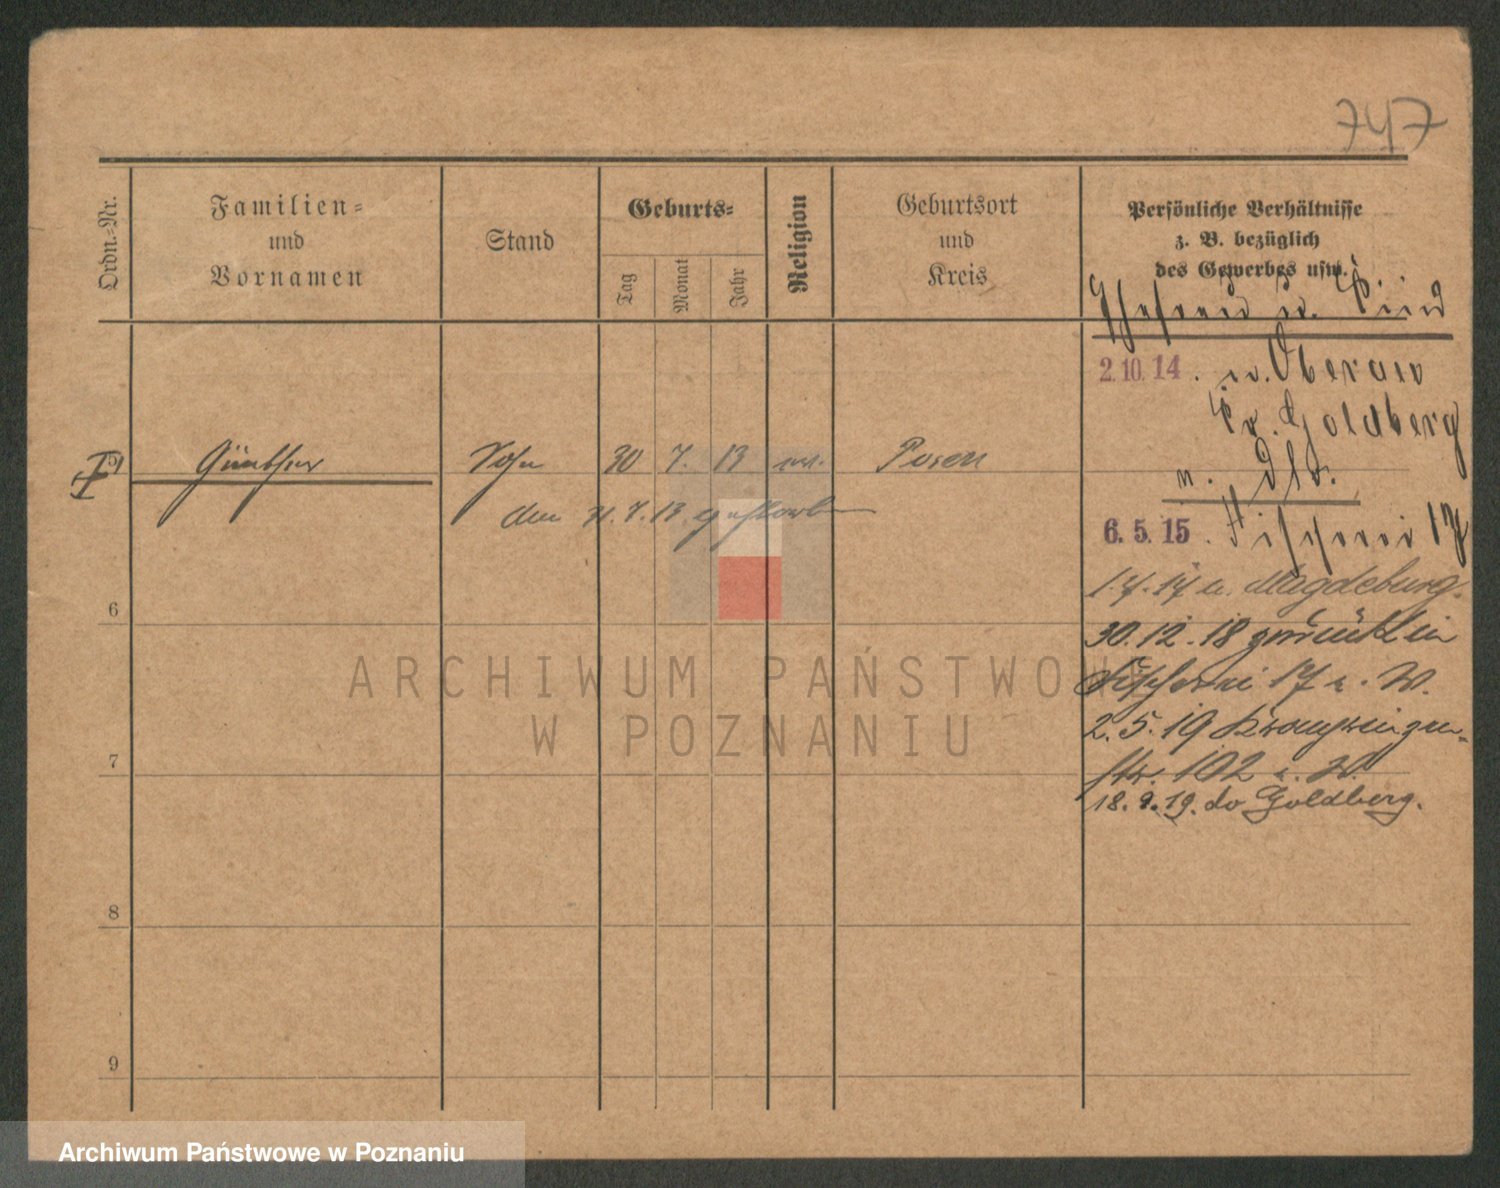 747
Ordn.-Nr.
Familien-
und
Vornamen
Stand
Geburts-
Tag
Monat
Jahr
Religion
Geburtsort
und
Kreis
Persönliche Verhältnisse
z. B. bezüglich
des Gewerbes usw.
Ehefrau u. Kind
2.10.14. n. Oberau
Kr. Goldberg
5 Günther Sohn 30 7. 13 Posen
den 31.7.13 gestorben
6.5.15. Fischerei 17
1.4.17 n. Magdeburg.
6
30.12.18 zurück in
Fischerei 17 z. W.
2.5.19 Kronprinzen-
str. 102 z. W.
18.9.19. do Goldberg.
7
8
9
ARCHIWUM PAŃSTWOW
W POZNANIU
Archiwum Państwowe w Poznaniu